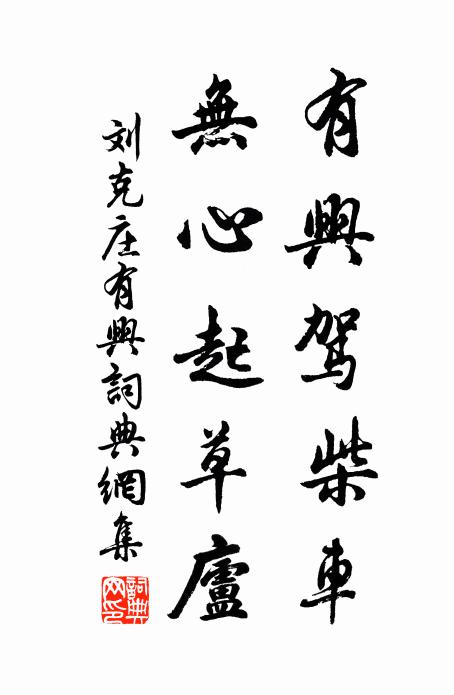 有興駕柴車
無心起草廬
刘克庄有興詞典網集
詞典網印